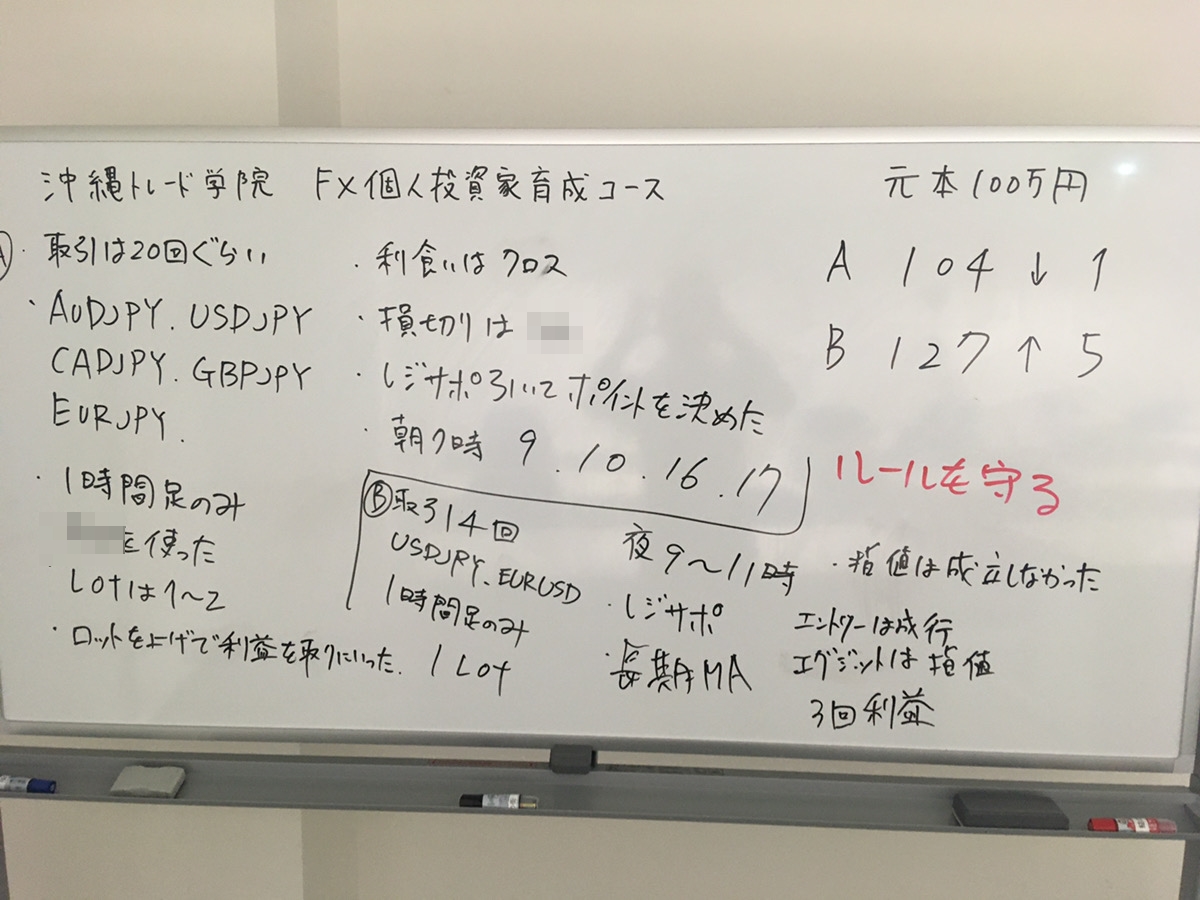 沖縄トレード学院 FX個人投資家育成コース
元本100万円
A
・取引は20回ぐらい
・AUDJPY.USDJPY
CADJPY.GBPJPY
EURJPY.
・1時間足のみ
を使った
Lotは1〜2
・ロットを上げて利益を取りにいった.
・利食いはクロス
・損切りは
・レジサポ引いてポイントを決めた
・朝7時 9.10.16.17
A 104↓1
B 127↑5
ルールを守る
B取引4回
USDJPY.EURUSD
1時間足のみ
1Lot
夜9〜11時
・レジサポ
・長期MA
・指値は成立しなかった
エントリーは成行
エグジットは指値
3回利益